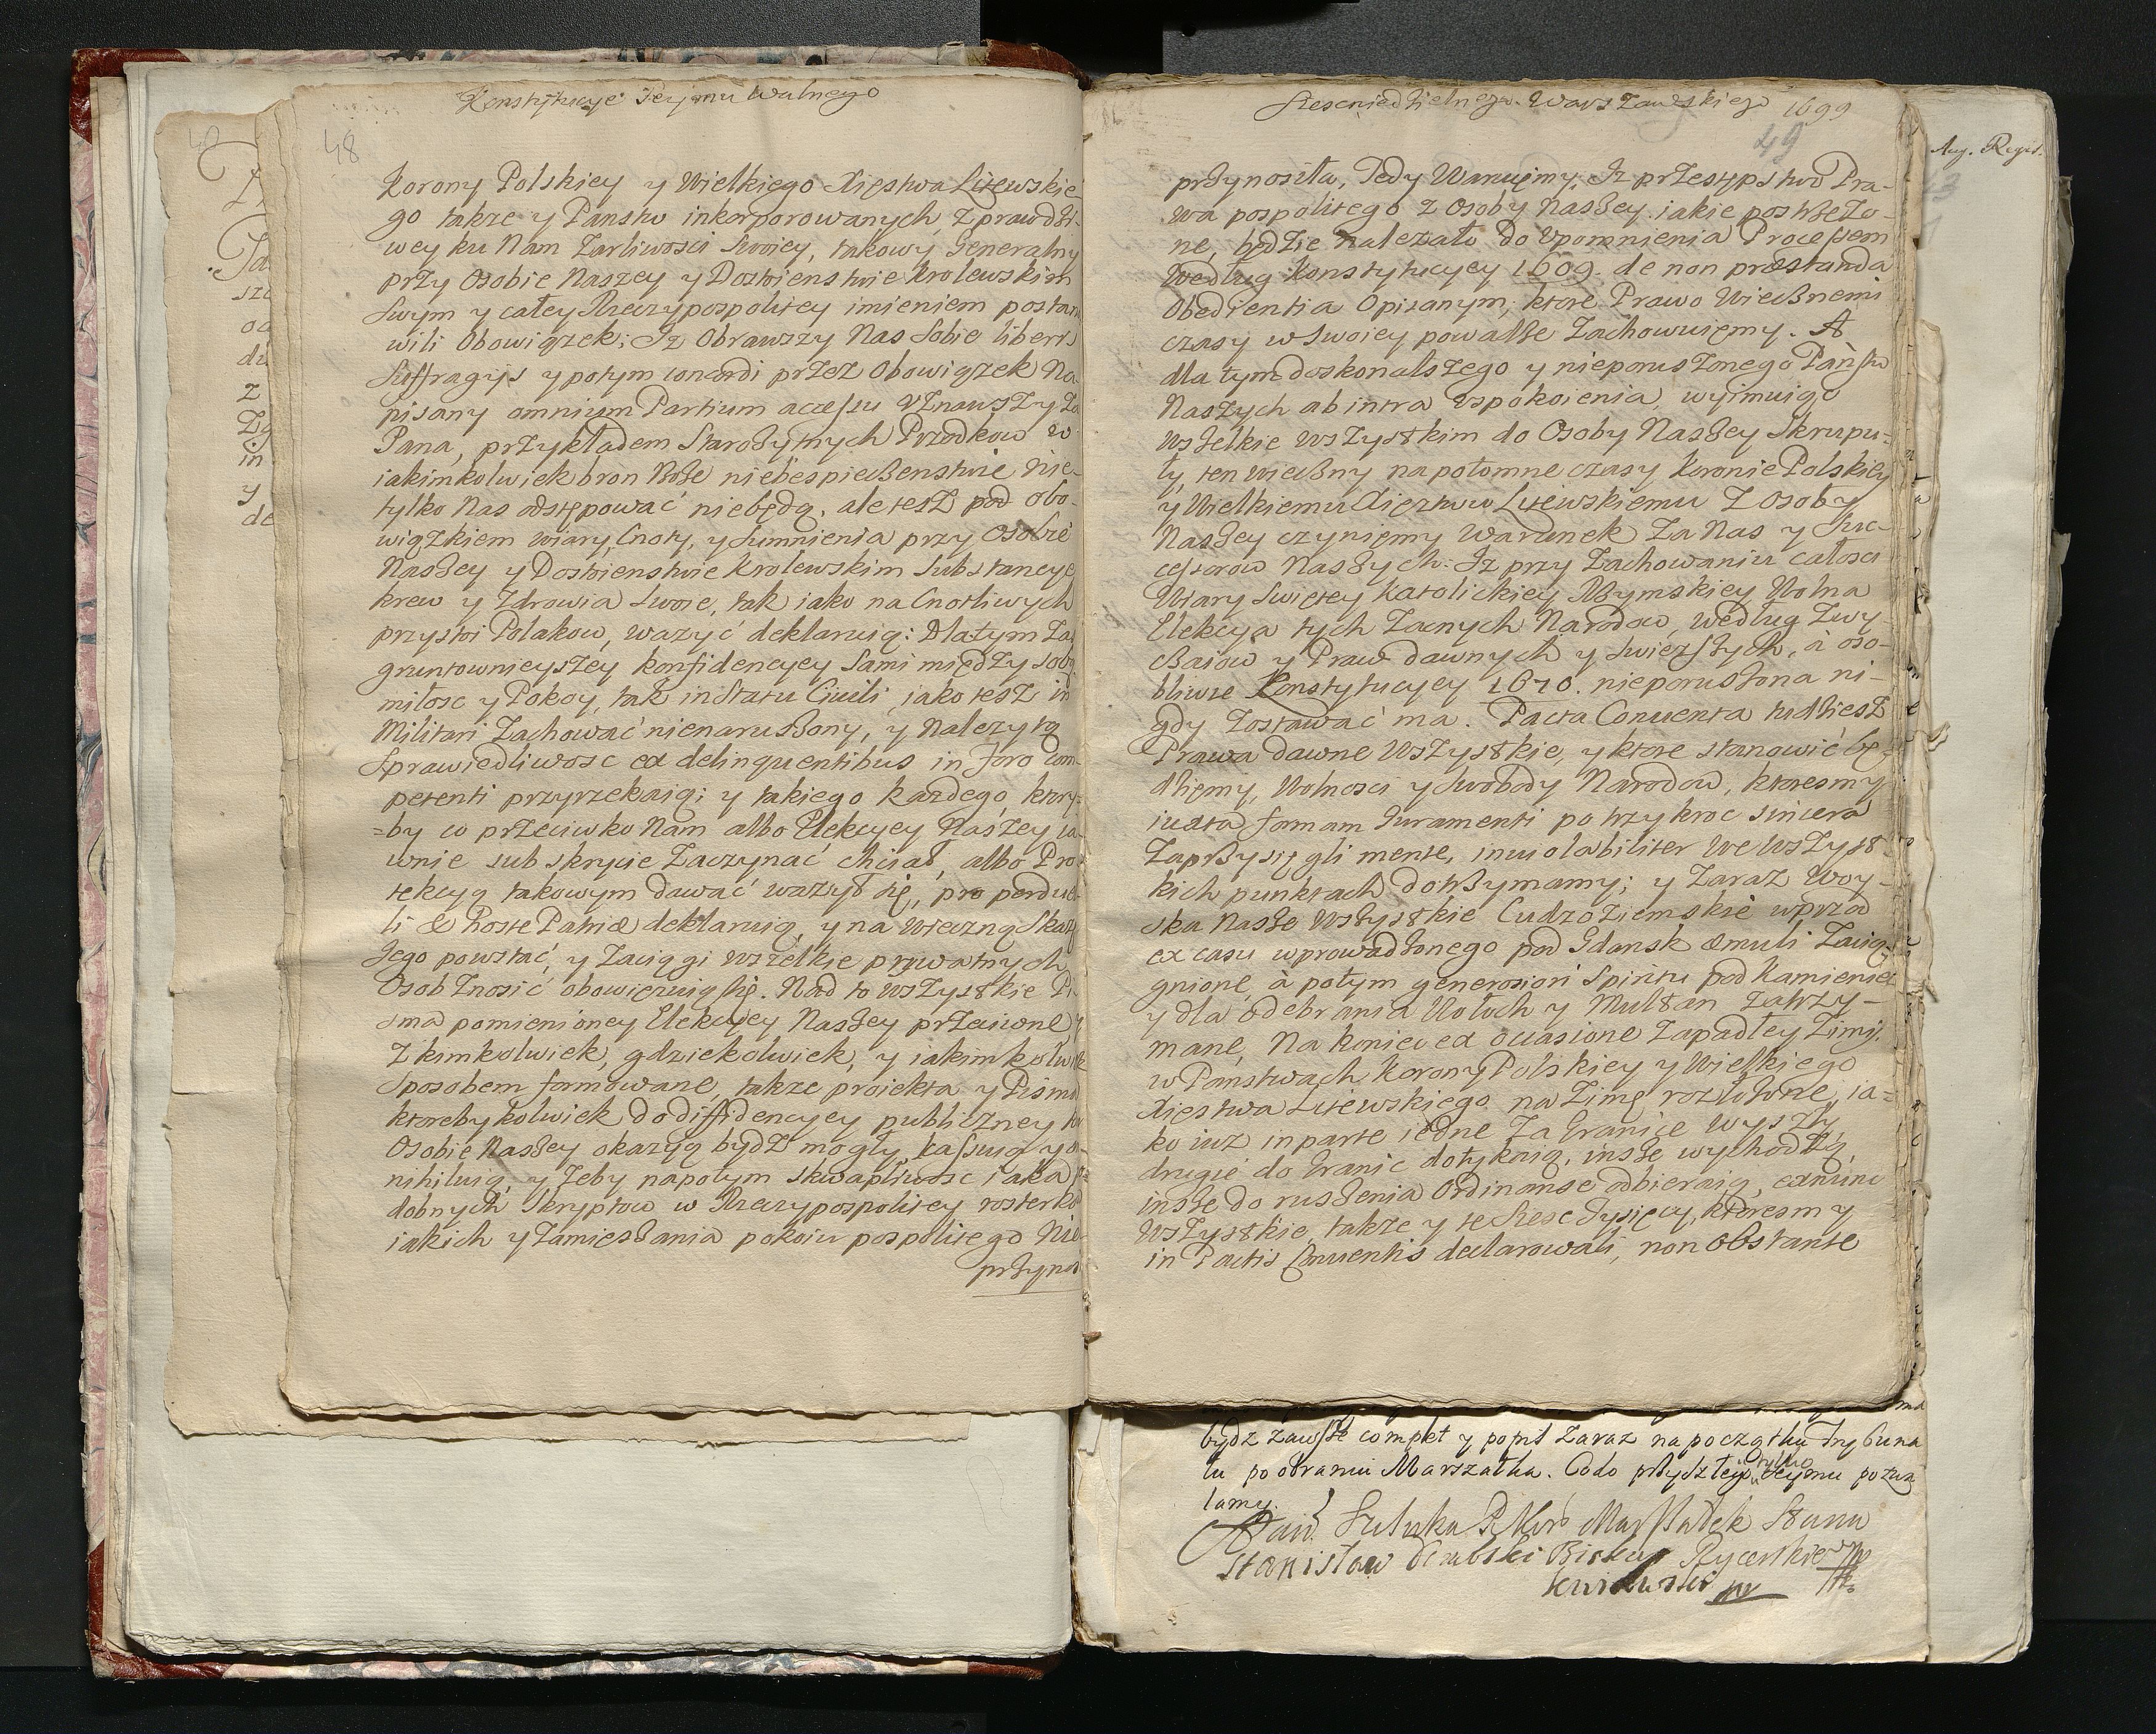 Konstytucye Seymu Walnego
48
Korony Polskiey y Wielkiego Xięstwa Litewskie
go takze y Panstw inkorporowanych, z prawdźi-
wey ku Nam Zarliwosci Swoiey, takowy Generalny
przy Osobie Naszey y Dostoienstwie Krolewskim
Swym y całey Rzeczypospolitey imieniem postan
wili Obowiązek; Iz Obrawszy Nas Sobie liberis
Suffragijs y potym concordi przez Obowiązek Na
pisany omnium Partium accessu Vznawszy Za
Pana, przykładem Starożytnych Przodkow w
iakimkolwiek bron Boże niebespieczenstwie Nie-
tylko Nas odstępować niebędą, ale tesz pod obo-
wiązkiem wiary, Cnoty, y Sumnienia przy Osobie
Naszey y Dostoienstwie Krolewskim Substancye
krew y Zdrowia Swoie, tak iako na Cnotliwych
przystoi Polakow, wazyć deklaruią: Dla tym Za
gruntownieyszey konfidencyey Sami między sobą
miłosc y Pokoy, tak in Statu Ciuili, jako tesz in
Militari Zachować nienaruszony, y Nalezytą
Sprawiedliwosc ex delinquentibus in Foro com-
petenti przyrzekaią; y takiego Kazdego, ktory-
=by co przeciwko Nam albo Elekcyey Naszey ia-
wnie sub skrycie Zaczynać chciał, albo Pro
tekcyą takowym dawać wazył się, pro perduel
li & hoste Patriæ deklaruią, y na Wieczną Skazę
Jego powstać, y Zaciągi wszelkie prywatnych
Osob Znosić obowięzuią się. Nad to wszystkie Pi-
sma pomienioney Elekcyey Naszey przeciwne, y
Z kimkolwiek, gdziekolwiek, y iakimkolwiek
Sposobem formowane, takze proiekta y Pisma
ktorebykolwiek do diffidencyey publiczney ku
Osobie Naszey okazyą bydź mogły, kassuią y an-
nihiluią, y Zeby napotym skwapliwosc iaka po-
dobnych Skryptow w Rzeczypospolitey rosterkow
iakich y Zamięszania pokoiu pospolitego Nie-
przyno
Szescniedzielnego. Warszawskiego 1699
49
przynosiła, Tedy Waruięmy, Iz przestępstwo Pra-
wa pospolitego z Osoby Naszey iakie postrzeżo-
ne, będzie nalezało do Vpomnienia Processem
Według Konstytucyey 1609. de non præstanda
Obedientia Opisanym, ktore Prawo Wiecznemi
czasy w Swoiey powadze Zachowuięmy. A
dla tym doskonalszego y nieporuszonego Państw
Naszych ab intra Vspokoienia, wyimuiąc
wszelkie wszystkim do Osoby Naszey Skrupu-
ły, ten Wieczny na potomne czasy Koronie Polskiey
y Wielkiemu Xięztwu Litewskiemu Z Osoby
Naszey czynięmy Warunek Za Nas y Suc-
cessorow Naszych: Iz przy Zachowaniu Całosci
Wiary Swiętey Katolickiey Rzymskiey Wolna
Elekcya tych Zacnych Narodow, według Zwy-
czaiow y Praw dawnych y Swiezszych, à oso-
bliwie Konstytucyey 1670. nieporuszona ni-
gdy Zostawać ma. Pacta Conuenta tudziesz
Prawa dawne Wszystkie, y ktore stanowić bę-
dzięmy, Wolnosci y Swobody Narodow, ktoresmy
iuxta formam Iuramenti po trzykroc sincera
Zaprzysięgli mente, inuiolabiliter We Wszyst-
kich punktach dotrzymamy; y Zaraz Woy-
ska Nasze Wszystkie Cudzoziemskie wprzod
ex casu wprowadzonego pod Gdansk æmuli Zacią-
gnione, à potym generosiori Spiritu pod Kamieniec
y dla Odebrania Wołoch y Multan Zatrzy-
mane, Na koniec ex occasione Zapadłey Zimy.
w Panstwach Korony Polskiey y Wielkiego
Xięstwa Litewskiego na Zimę rozłożone, ia=
ko iuz in parte iedne Za Granice wyszły,
drugie do Granic dotykaią, insze wychodzą,
insze do ruszenia Ordinanse odbieraią, exnunc
Wszystkie, takze y te Szesc Tysięcy, ktoresmy
in Pactis Conuentis declarowali, non Obstante
Aug. Regis.
bydz zawsze complet y popis Zaraz na początku Trybuna
łu po obraniu Marszałka. Co do przyszłego Seymu pozwa
lamy.
Stanisław Biskup